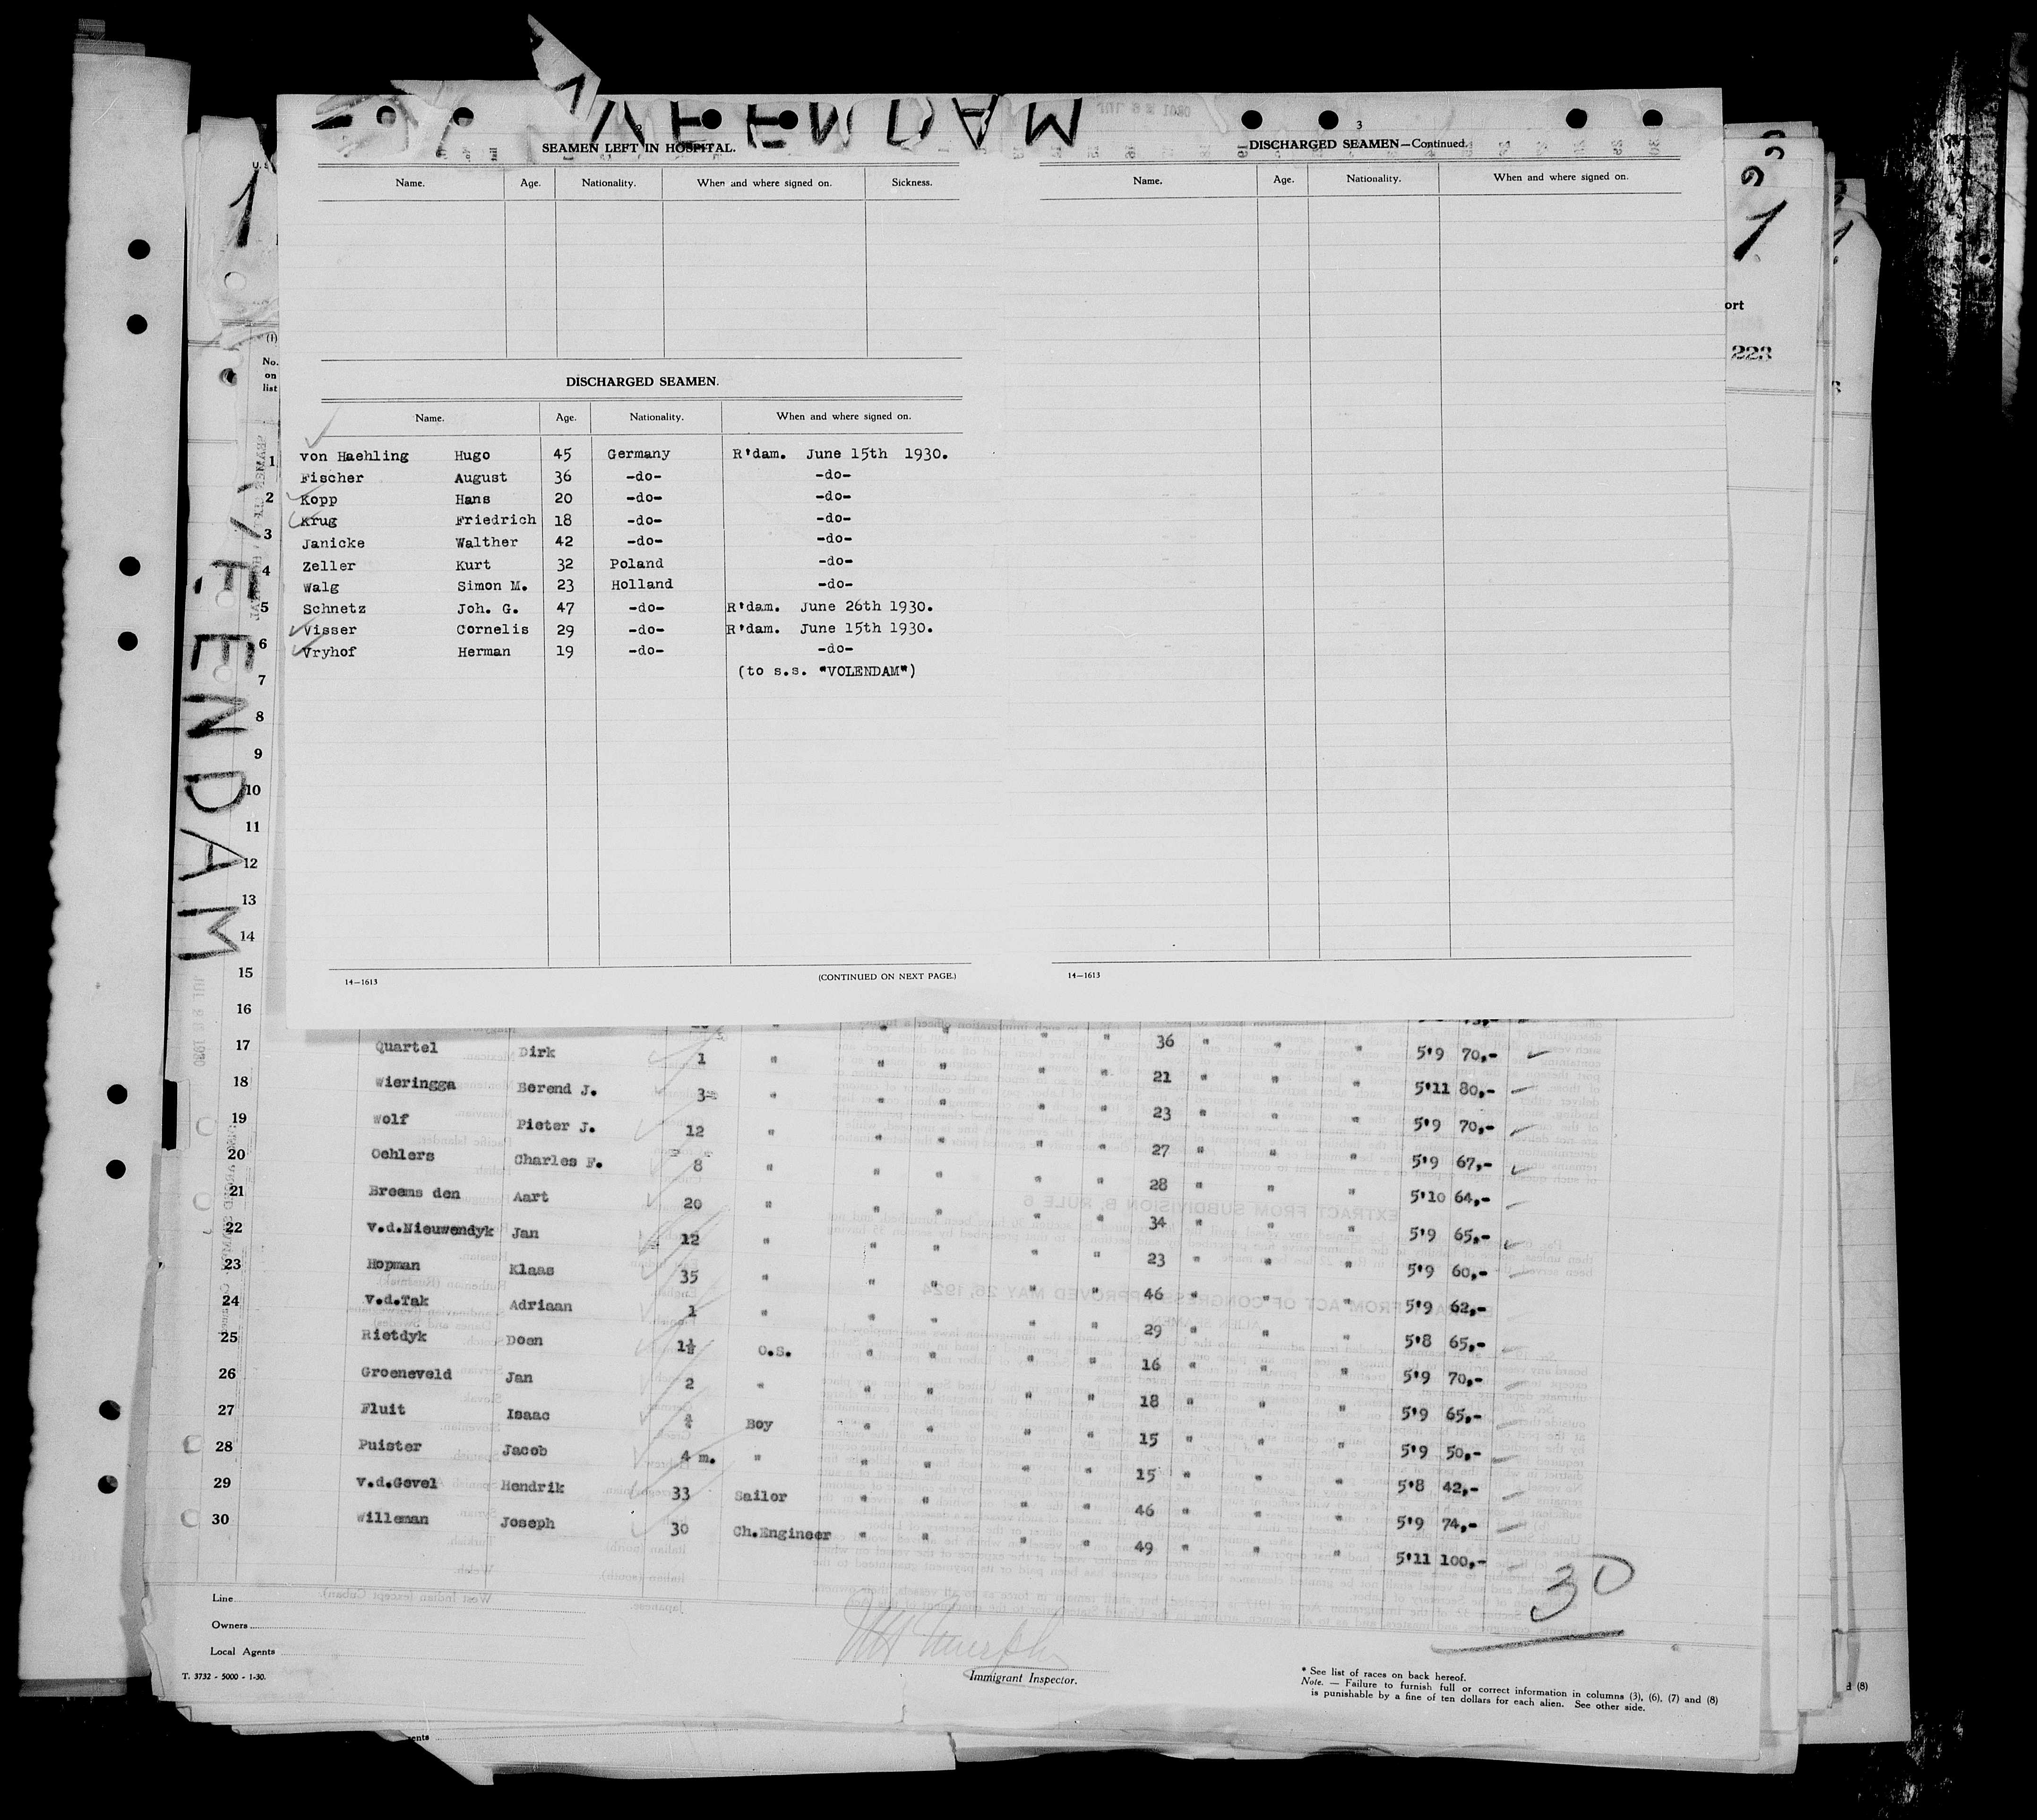 VEENDAM
3
SEAMEN LEFT IN HOSPITAL.
Name. Age. Nationality. When and where signed on. Sickness.
DISCHARGED SEAMEN.
Name. Age. Nationality. When and where signed on.
von Haehling Hugo 45 Germany R'dam. June 15th 1930.
Fischer August 36 -do- -do-
Kopp Hans 20 -do- -do-
Krug Friedrich 18 -do- -do-
Janicke Walther 42 -do- -do-
Zeller Kurt 32 Poland -do-
Walg Simon M. 23 Holland -do-
Schnetz Joh. G. 47 -do- R'dam. June 26th 1930.
Visser Cornelis 29 -do- R'dam. June 15th 1930.
Vryhof Herman 19 -do- -do-
(to s.s. "VOLENDAM")
14—1613 (CONTINUED ON NEXT PAGE.)
DISCHARGED SEAMEN—Continued.
Name. Age. Nationality. When and where signed on.
14—1613
ort
223
1
1
(1)
No.
on
list
EENDAM
JUL 28 1930
1
2
3
4
5
6
7
8
9
10
11
12
13
14
15
16
17 Quartel Dirk 1 " " " " " 36 " " " 5'9 70,-
18 Wieringga Berend J. 3 " " " " " 21 " " " 5'11 80,-
19 Wolf Pieter J. 12 " " " " " 23 " " " 5'9 70,-
20 Oehlers Charles F. 8 " " " " " 27 " " " 5'9 67,-
21 Breems den Aart 20 " " " " " 28 " " " 5'10 64,-
22 v.d.Nieuwendyk Jan 12 " " " " " 34 " " " 5'9 65,-
23 Hopman Klaas 35 " " " " " 23 " " " 5'9 60,-
24 v.d.Tak Adriaan 1 " " " " " 46 " " " 5'9 62,-
25 Rietdyk Doen 1½ O.S. " " " " 29 " " " 5'8 65,-
26 Groeneveld Jan 2 " " " " " 16 " " " 5'9 70,-
27 Fluit Isaac Boy " " " " 18 " " " 5'9 65,-
28 Puister Jacob 4 m. " " " " " 15 " " " 5'9 50,-
29 v.d.Gevel Hendrik 33 Sailor " " " " 15 " " " 5'8 42,-
30 Willeman Joseph 30 Ch.Engineer " " " " 46 " " " 5'9 74,-
49 " " " 5'11 100,-
30
Line
Owners
Local Agents
T. 3732 - 5000 - 1-30.
Immigrant Inspector.
* See list of races on back hereof.
Note. — Failure to furnish full or correct information in columns (3), (6), (7) and (8)
is punishable by a fine of ten dollars for each alien. See other side.
(8)